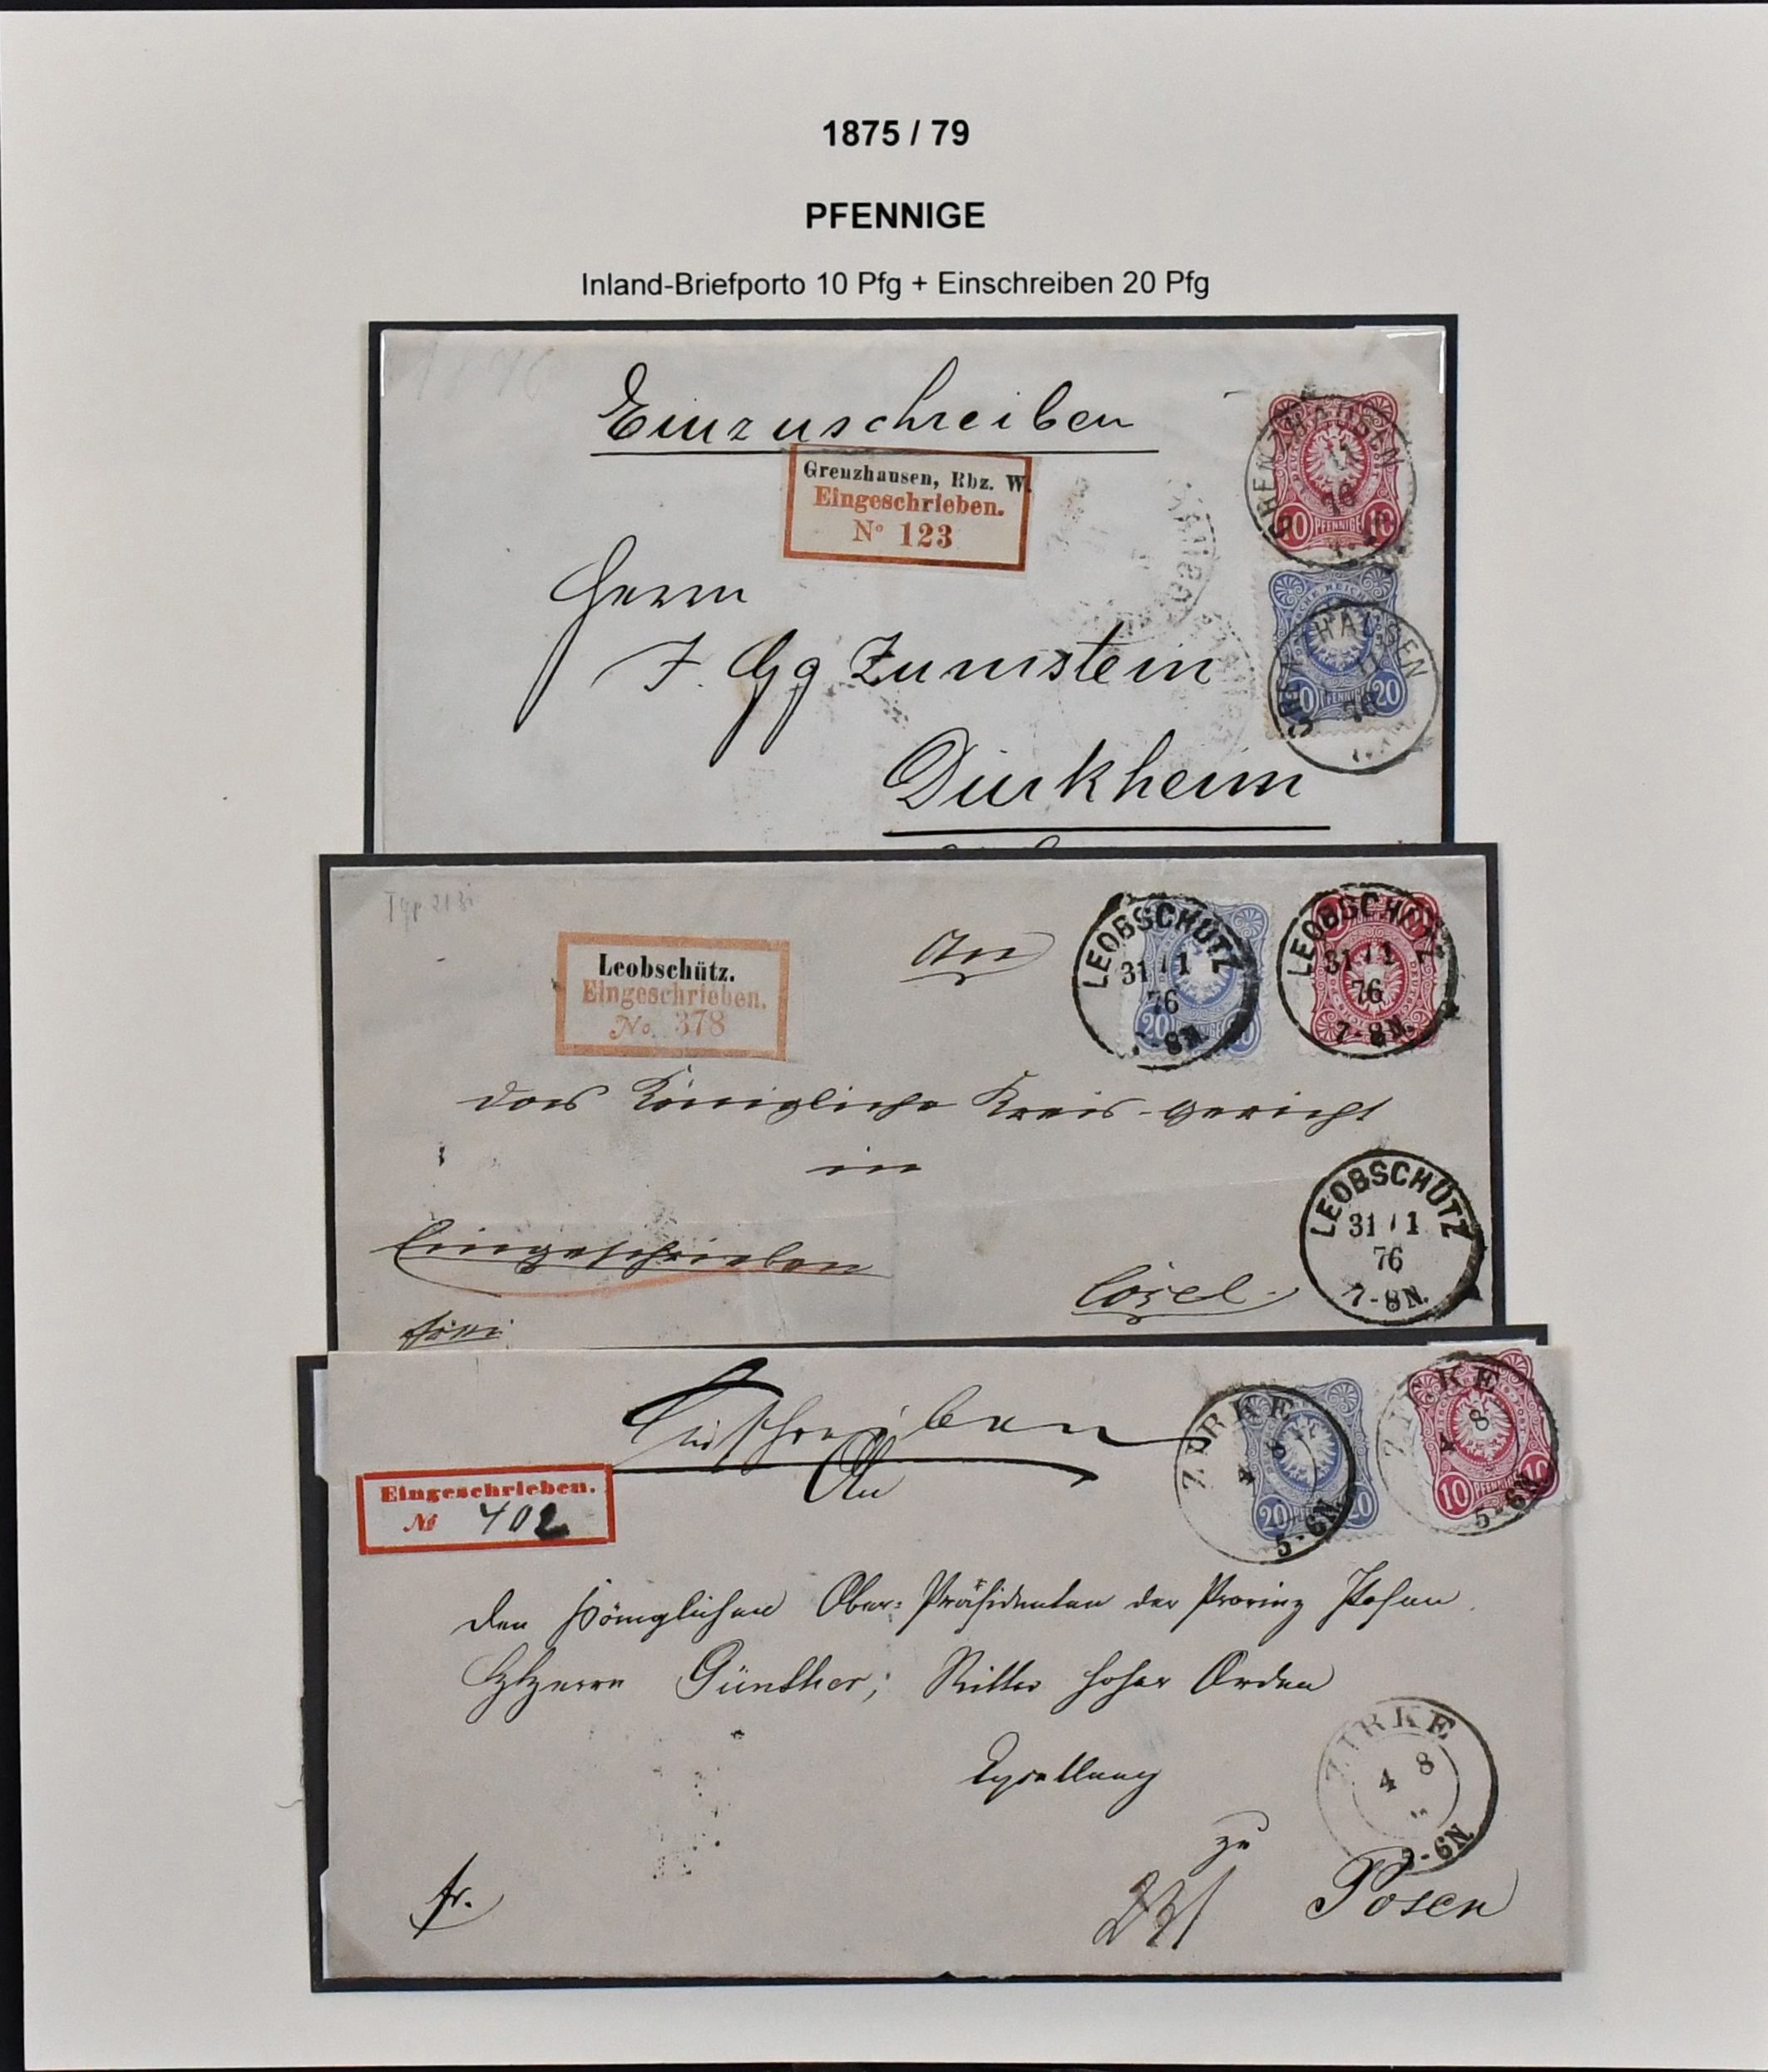 1875 / 79
PFENNIGE
Inland-Briefporto 10 Pfg + Einschreiben 20 Pfg
Einzuschreiben
Grenzhausen, Rbz. W.
Eingeschrieben.
No 123
Herrn
J. Gg Zumstein
Dürkheim
GRENZHAUSEN
11
76
10 PFENNIGE 10
GRENZHAUSEN
11
76
20 PFENNIGE 20
Typ. 21
Leobschütz.
Eingeschrieben.
No. 378
An
LEOBSCHÜTZ
31 1
76
7-8N.
20 PFENNIGE
LEOBSCHÜTZ
31 1
76
7-8N.
das Königliche Kreis-gericht
in
Eingeschrieben
Cosel.
frei
LEOBSCHÜTZ
31 1
76
7-8N.
Einschreiben
An
Eingeschrieben.
No 402
ZIRKE
4 8
5-6N.
20 20
ZIRKE
4 8
5-6N.
10 PFENNIGE 10
den Königlichen Ober-Präsidenten der Provinz Posen
Herrn Günther; Ritter hoher Orden
zu
Posen
ZIRKE
4 8
5-6N.
fr.